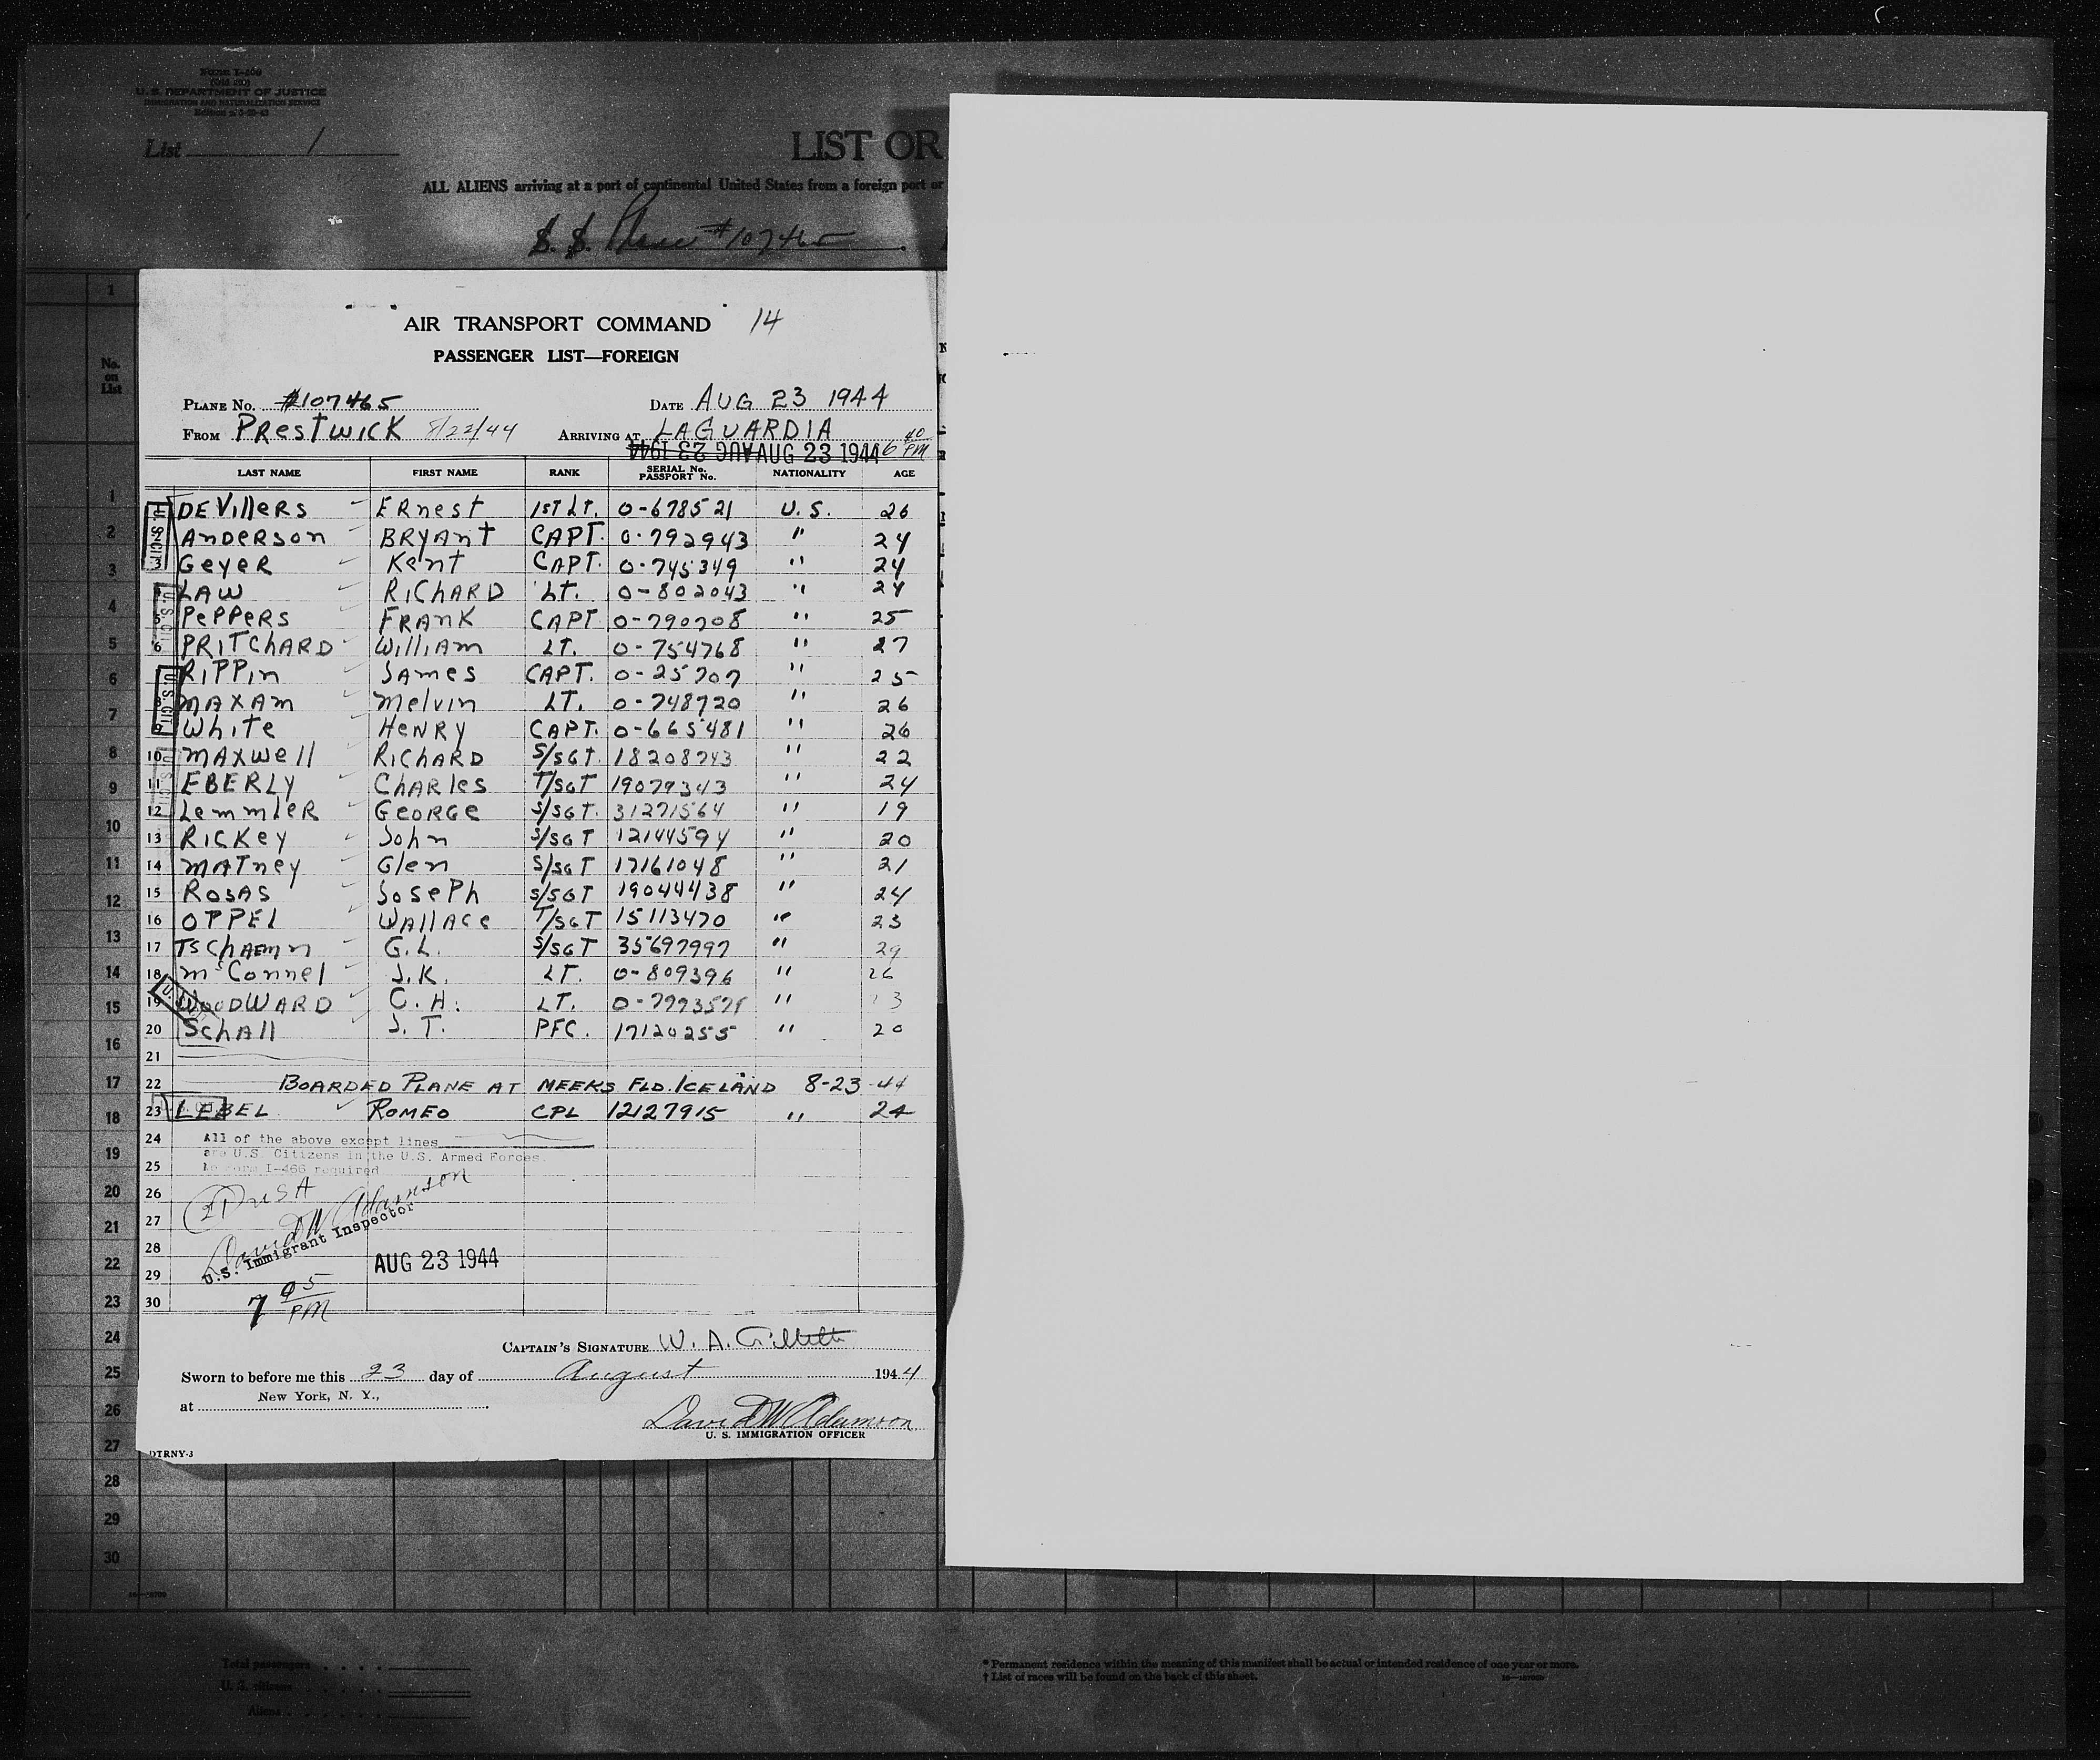 Form I-466
U. S. DEPARTMENT OF JUSTICE
IMMIGRATION AND NATURALIZATION SERVICE
List 1
LIST OR
ALL ALIENS arriving at a port of continental United States from a foreign port or
S. S. Plane #107465
No. on List
AIR TRANSPORT COMMAND 14
PASSENGER LIST—FOREIGN
PLANE No. #107465 DATE AUG 23 1944
FROM PRESTWICK 8/22/44 ARRIVING AT LAGUARDIA
AUG 23 1944 AUG 23 1944 6 40 PM
LAST NAME FIRST NAME RANK SERIAL No. PASSPORT No. NATIONALITY AGE
DEVillERS ERnest 1ST LT. 0-678521 U.S. 26
AnDERSon BRYAnt CAPT. 0-792943 " 24
3 GeyeR Kent CAPT. 0-745349 " 24
LAW RICHARD LT. 0-802043 " 24
5 PePPeRS FRAnK CAPT 0-790708 " 25
6 PRITChARD William LT. 0-754768 " 27
RiPPin JAmes CAPT. 0-25707 " 25
MAXAm Melvin LT. 0-748720 " 26
9 White HeNRY CAPT. 0-665481 " 26
10 MAXWell RICHARD S/SGT. 18208743 " 22
11 EBERLY ChARles T/SGT 19079343 " 24
12 LemmleR GeORGe S/SGT. 31271564 " 19
13 RicKey John S/SGT 12144594 " 20
14 MATney Glen S/SGT 17161048 " 21
15 ROSAS JosePh S/SGT 19044438 " 24
16 OPPEL WAllACe T/SGT 15113470 " 23
17 TSChAEmn G.L. S/SGT 35697997 " 29
18 McConnel J.K. LT. 0-809396 " 26
19 WOODWARD C.H. LT. " 23
20 SchAll J.T. PFC. 17120255 " 20
21
22 BOARDED PLANE AT MEEKS FLD. ICELAND 8-23-44
23 LEBEL ROMEO CPL 12127915 " 24
24 All of the above except lines
are U.S. Citizens in the U.S. Armed Forces.
25 No Form I-466 required
26 21 USA
27 David W Adamson
28 U.S. Immigrant Inspector
29 AUG 23 1944
30 7 05 PM
CAPTAIN'S SIGNATURE W. A. Gillette
Sworn to before me this 23 day of August 1944
at New York, N. Y.,
David W Adamson
U. S. IMMIGRATION OFFICER
DTRNY-3
1
2
3
4
5
6
7
8
9
10
11
12
13
14
15
16
17
18
19
20
21
22
23
24
25
26
27
28
29
30
Total passengers
U. S. citizens
Aliens
* Permanent residence within the meaning of this manifest shall be actual or intended residence of one year or more.
† List of races will be found on the back of this sheet.